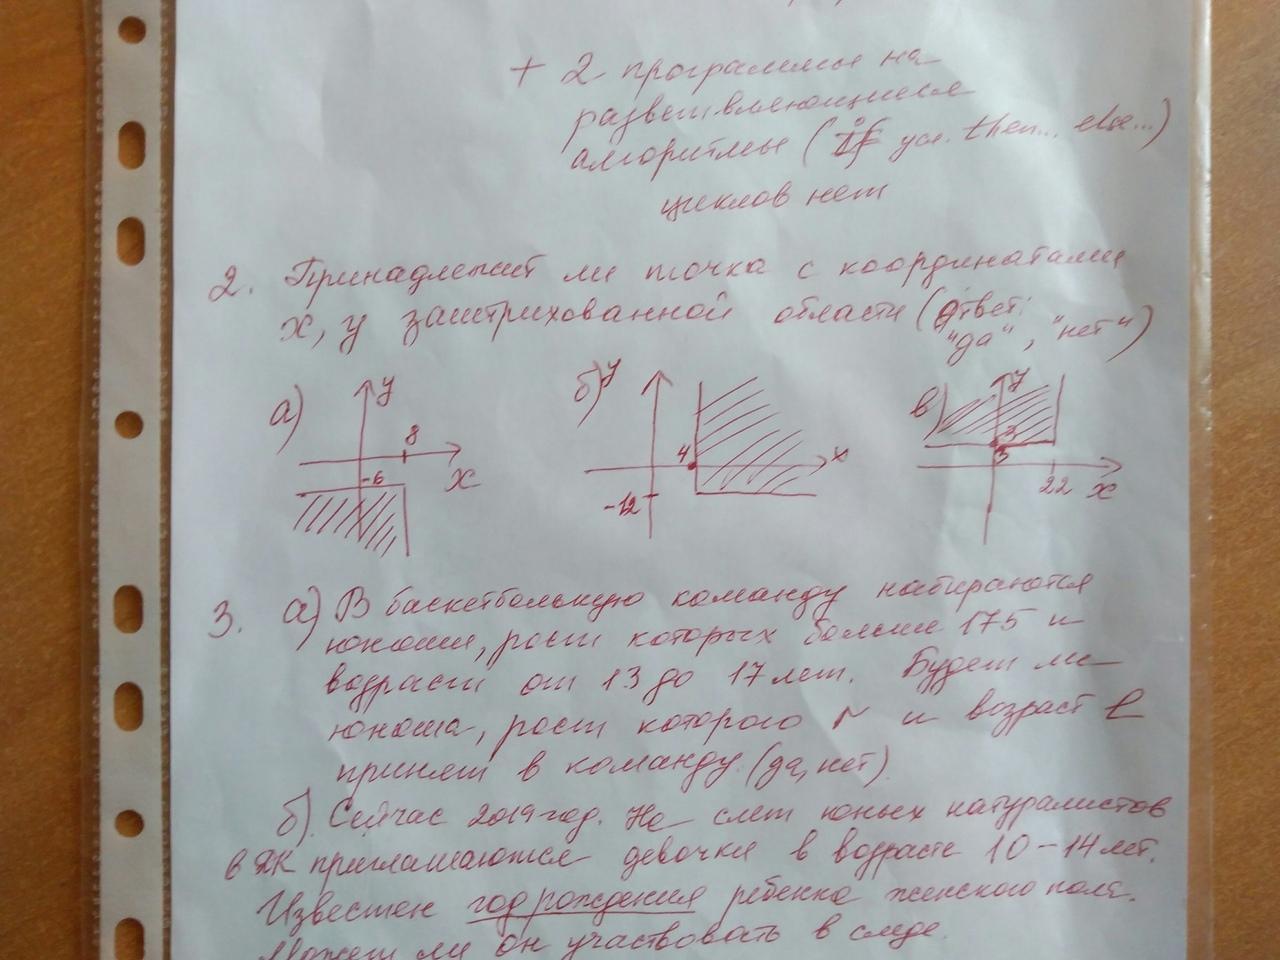 + 2 программы на
разветвляющиеся
алгоритмы (if усл. then... else...)
циклов нет
2. Принадлежит ли точка с координатами
x, y заштрихованной области (Ответ:
"да", "нет")
а) y 8 -6 x
б) y 4 -12 x
в) y 3 22 x
3. а) В баскетбольную команду набираются
юноши, рост которых больше 175 и
возраст от 13 до 17 лет. Будет ли
юноша, рост которого r и возраст l
принят в команду. (да, нет)
б) Сейчас 2019 год. На слет юных натуралистов
в ДК приглашаются девочки в возрасте 10-14 лет.
Известен год рождения ребенка женского пола.
Может ли он участвовать в слете.